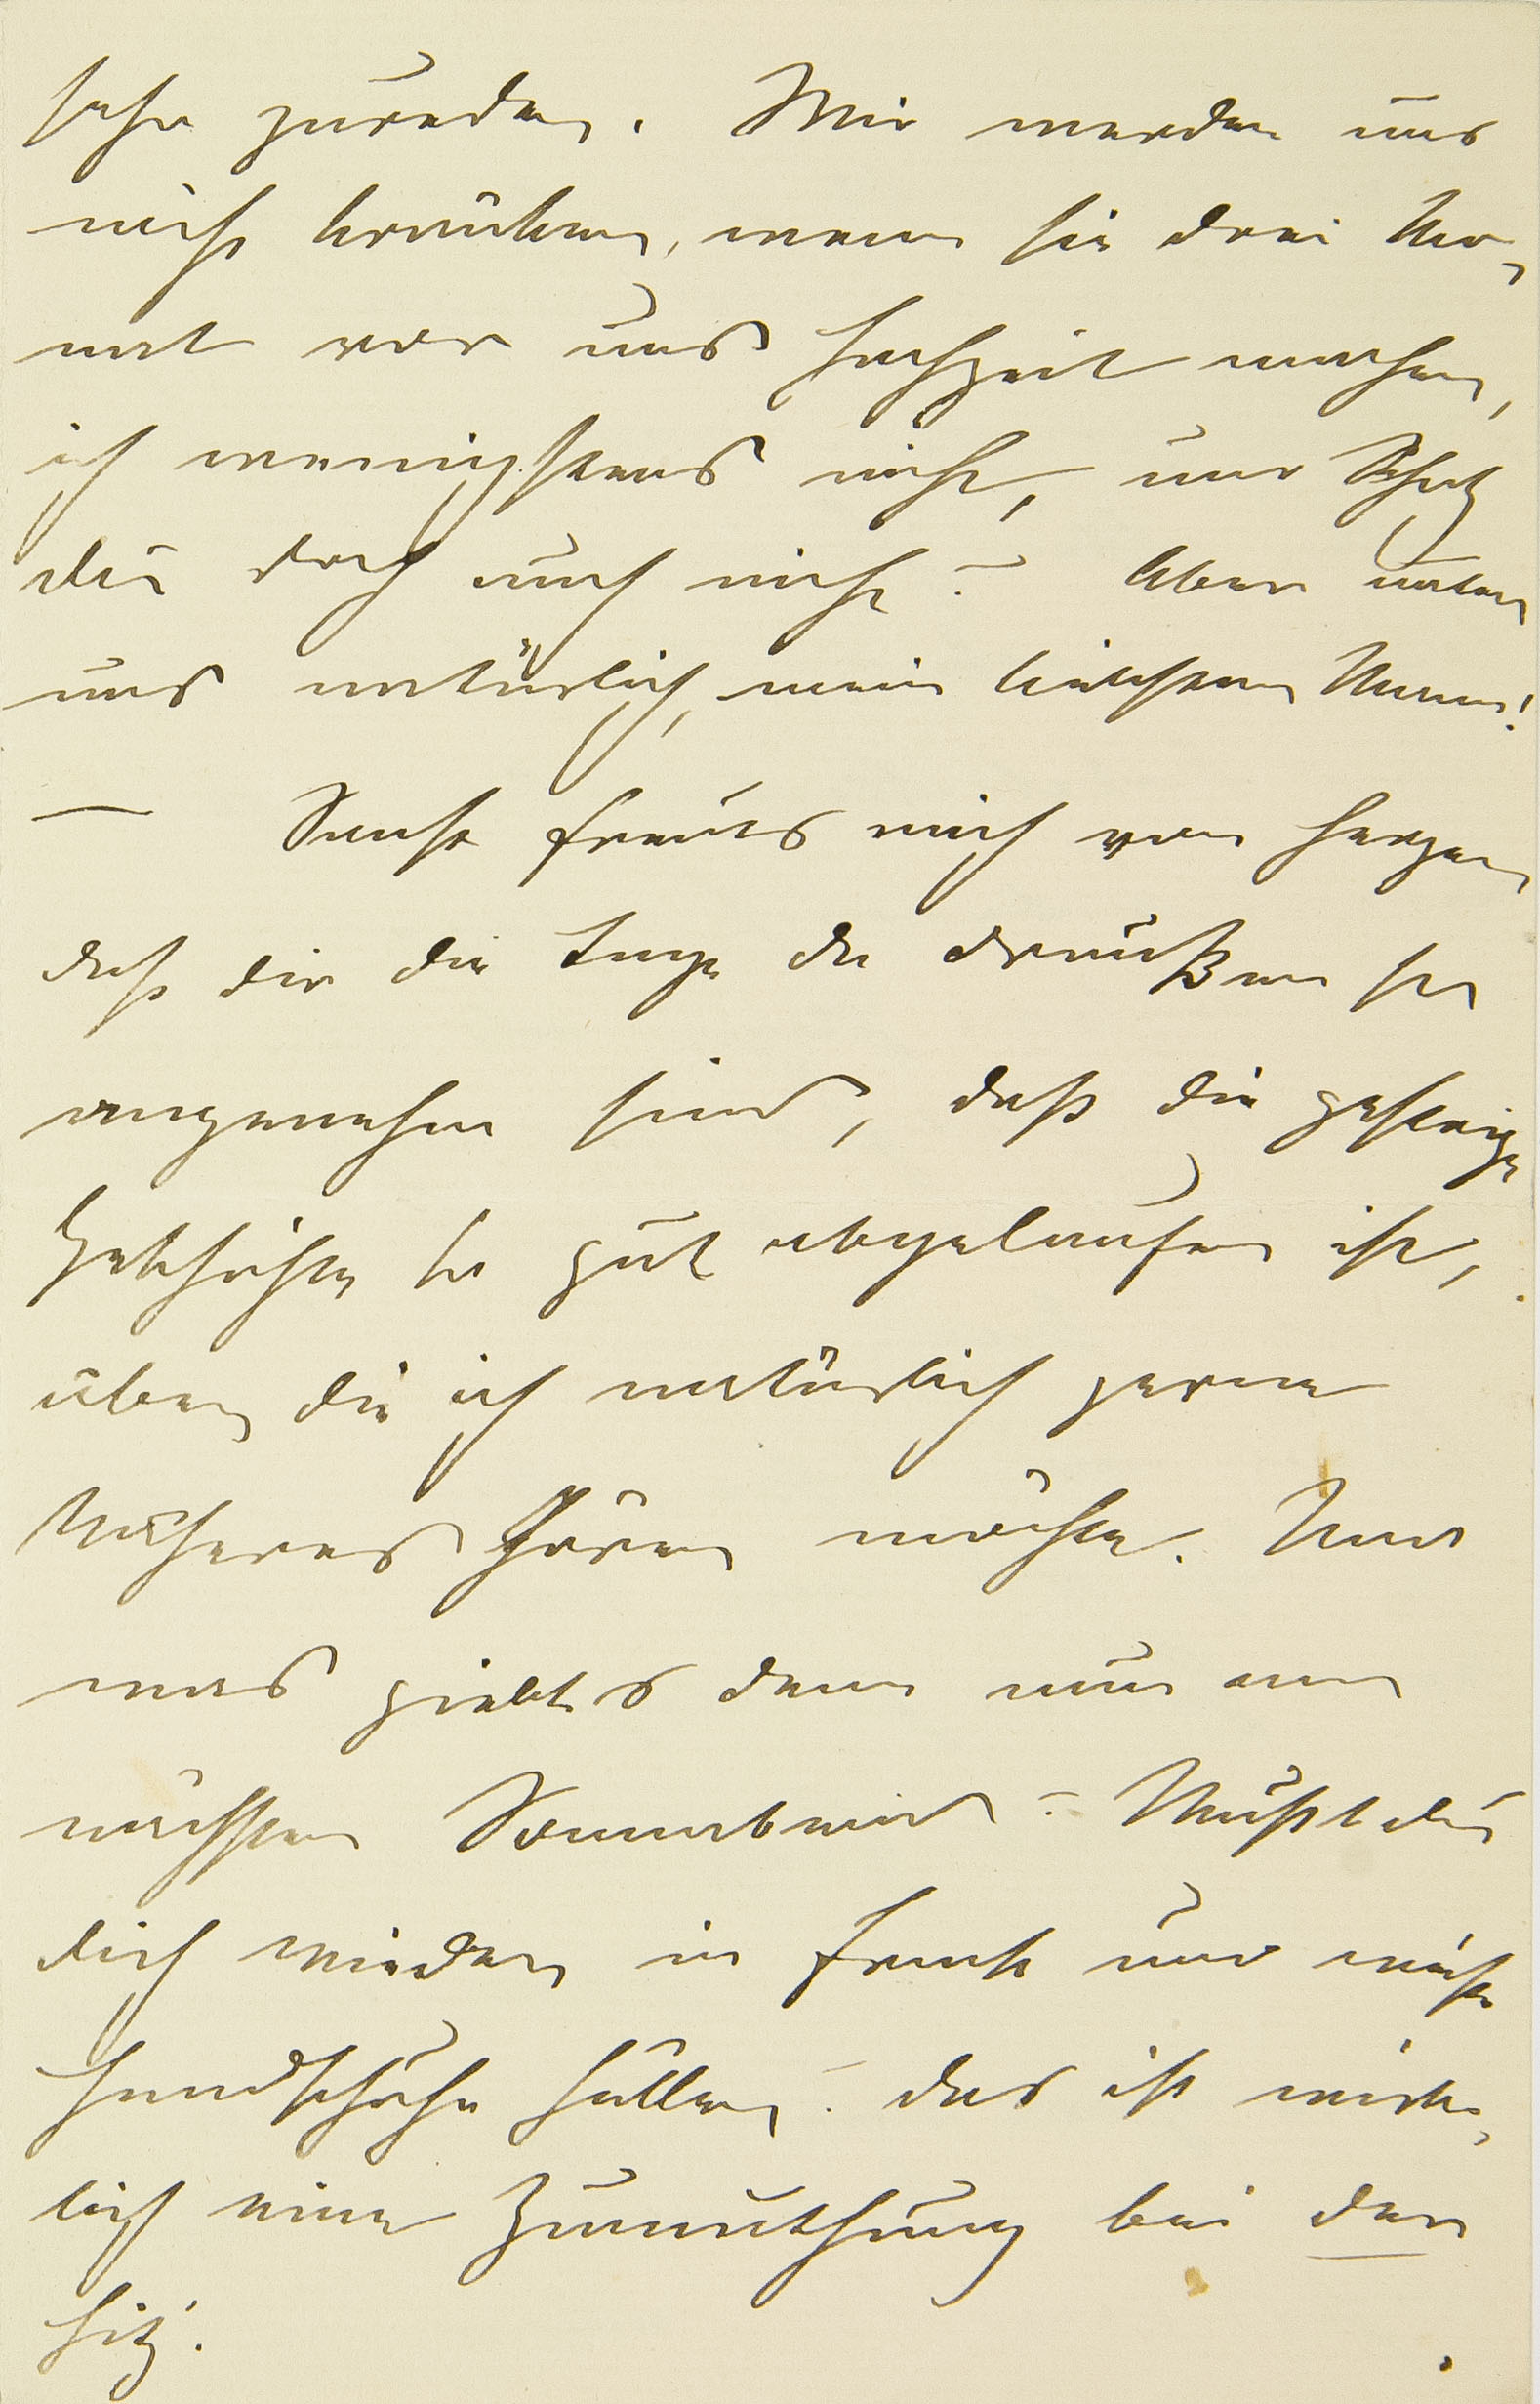 sehr zureden. Wir werden uns
nicht kränken, wenn sie drei Mo-
nat vor uns Hochzeit machen,
ich wenigstens nicht, und Schatz
du doch auch nicht? Aber unter
uns natürlich, mein liebster Mann!
— Sonst freuts mich von Herzen
daß dir die Tage da draußen so
angenehm sind, daß die gestrige
Festsache so gut abgelaufen ist,
über die ich natürlich gerne
Näheres hören möchte. Und
was giebts denn nun am
nächsten Sonnabend? Mußt du
dich wieder in Frack und weiße
Handschuhe hüllen? das ist wirk-
lich eine Zumuthung bei der
Hitz.